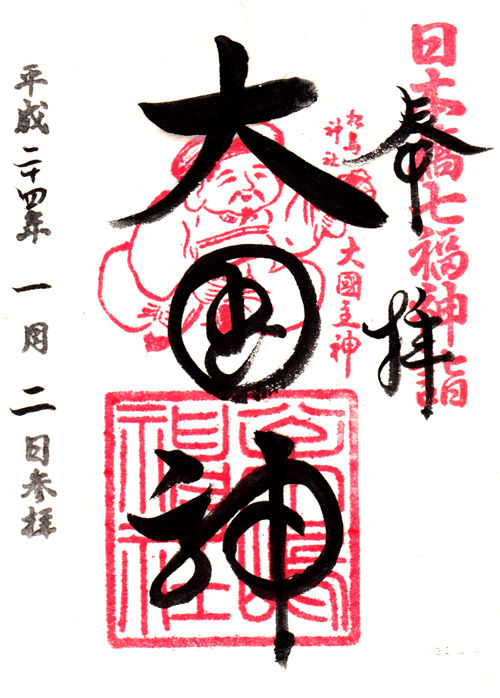 日本橋七福神詣
奉拝
松島
神社
大國主神
大国神
平成二十四年一月二日参拝